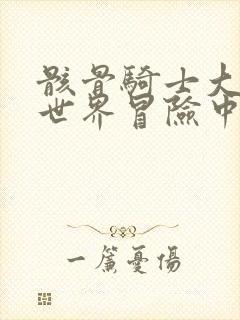 骸骨騎士大
世界冒險中
一簾憂傷